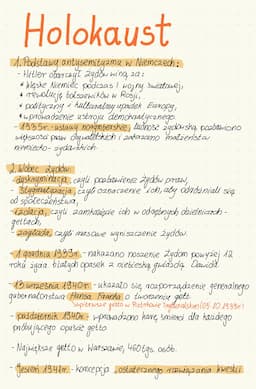 Holokaust
1. Podstawy antysemityzmu w Niemczech:
- Hitler obarczył Żydów winą za:
* klęskę Niemiec podczas I wojny światowej,
* rewolucję bolszewików w Rosji,
* polityczny i kulturowy upadek Europy,
* wprowadzenie ustroju demokratycznego.
- 1935r. - ustawy norymberskie, ludność żydowską pozbawiono
większości praw obywatelskich i zakazano małżeństw
niemiecko-żydowskich.
2. Wobec Żydów:
- dyskryminacja, czyli pozbawienie Żydów praw,
- stygmatyzacja, czyli oznaczenie ich, aby odróżniali się
od społeczeństwa,
- izolacja, czyli zamknięcie ich w odrębnych dzielnicach-
gettach,
- zagłada, czyli masowe wyniszczenie Żydów.
- 1 grudnia 1939r. - nakazano noszenie Żydom powyżej 12
roku życia białych opasek z niebieską gwiazdą Dawida.
- 13 września 1940r. - ukazało się rozporządzenie generalnego
gubernatorstwa Hansa Franka o tworzeniu gett.
w Piotrkowie Trybunalskim (05.10.1939r.)
- październik 1941r. - wprowadzono karę śmierci dla każdego
próbującego opuścić getto.
- Największe getto w Warszawie, 460 tys. osób.
- jesień 1941r. - koncepcja „ostatecznego rozwiązania kwestii